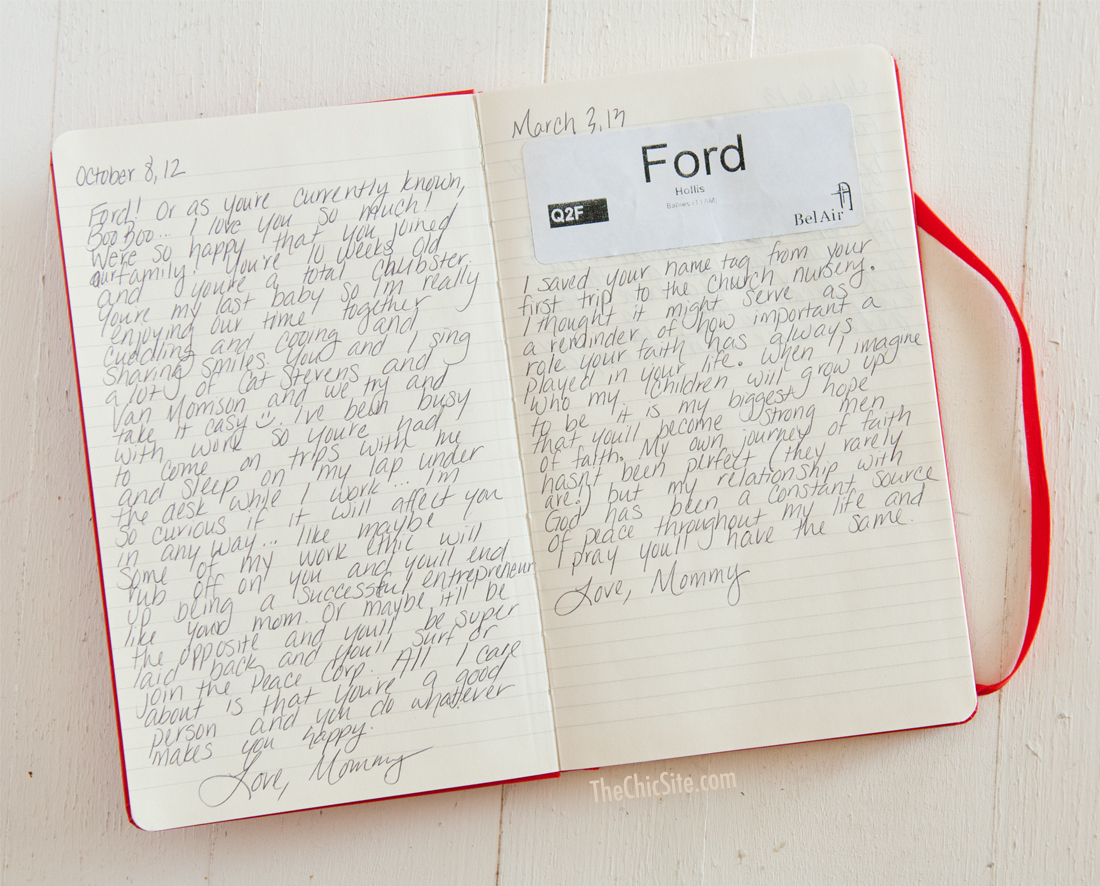 October 8, 12
Ford! Or as you're currently known,
Boo Boo... I love you so much!
We're so happy that you joined
our family! You're 10 weeks old
and you're a total chubster.
You're my last baby so I'm really
enjoying our time together
cuddling and cooing and
sharing smiles. You and I sing
a lot of Cat Stevens and
Van Morrison and we try and
take it easy ☺. I've been busy
with work so you've had
to come on trips with me
and sleep on my lap under
the desk while I work... I'm
so curious if it will affect you
in any way... like maybe
some of my work ethic will
rub off on you and you'll end
up being a successful entrepreneur
like your mom. Or maybe it'll be
the opposite and you'll be super
laid back and you'll surf or
join the Peace Corp. All I care
about is that you're a good
person and you do whatever
makes you happy.
Love, Mommy
March 3, 13
Ford
Hollis
Q2F
BelAir
I saved your name tag from your
first trip to the church nursery.
I thought it might serve as
a reminder of how important a
role your faith has always
played in your life. When I imagine
who my children will grow up
to be it is my biggest hope
that you'll become strong men
of faith. My own journey of faith
hasn't been perfect (they rarely
are!) but my relationship with
God has been a constant source
of peace throughout my life and
I pray you'll have the same.
Love, Mommy
TheChicSite.com